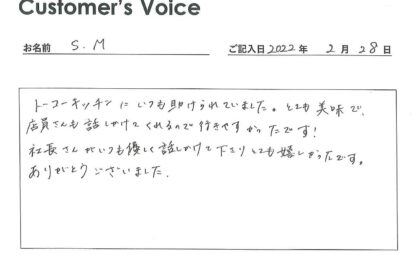 Customer's Voice
お名前 S.M ご記入日2022年2月28日
トーコーキッチンにいつも助けられていました。とても美味で、
店員さんも話しかけてくれるので行きやすかったです!
社長さんがいつも優しく話しかけて下さりとても嬉しかったです。
ありがとうございました.